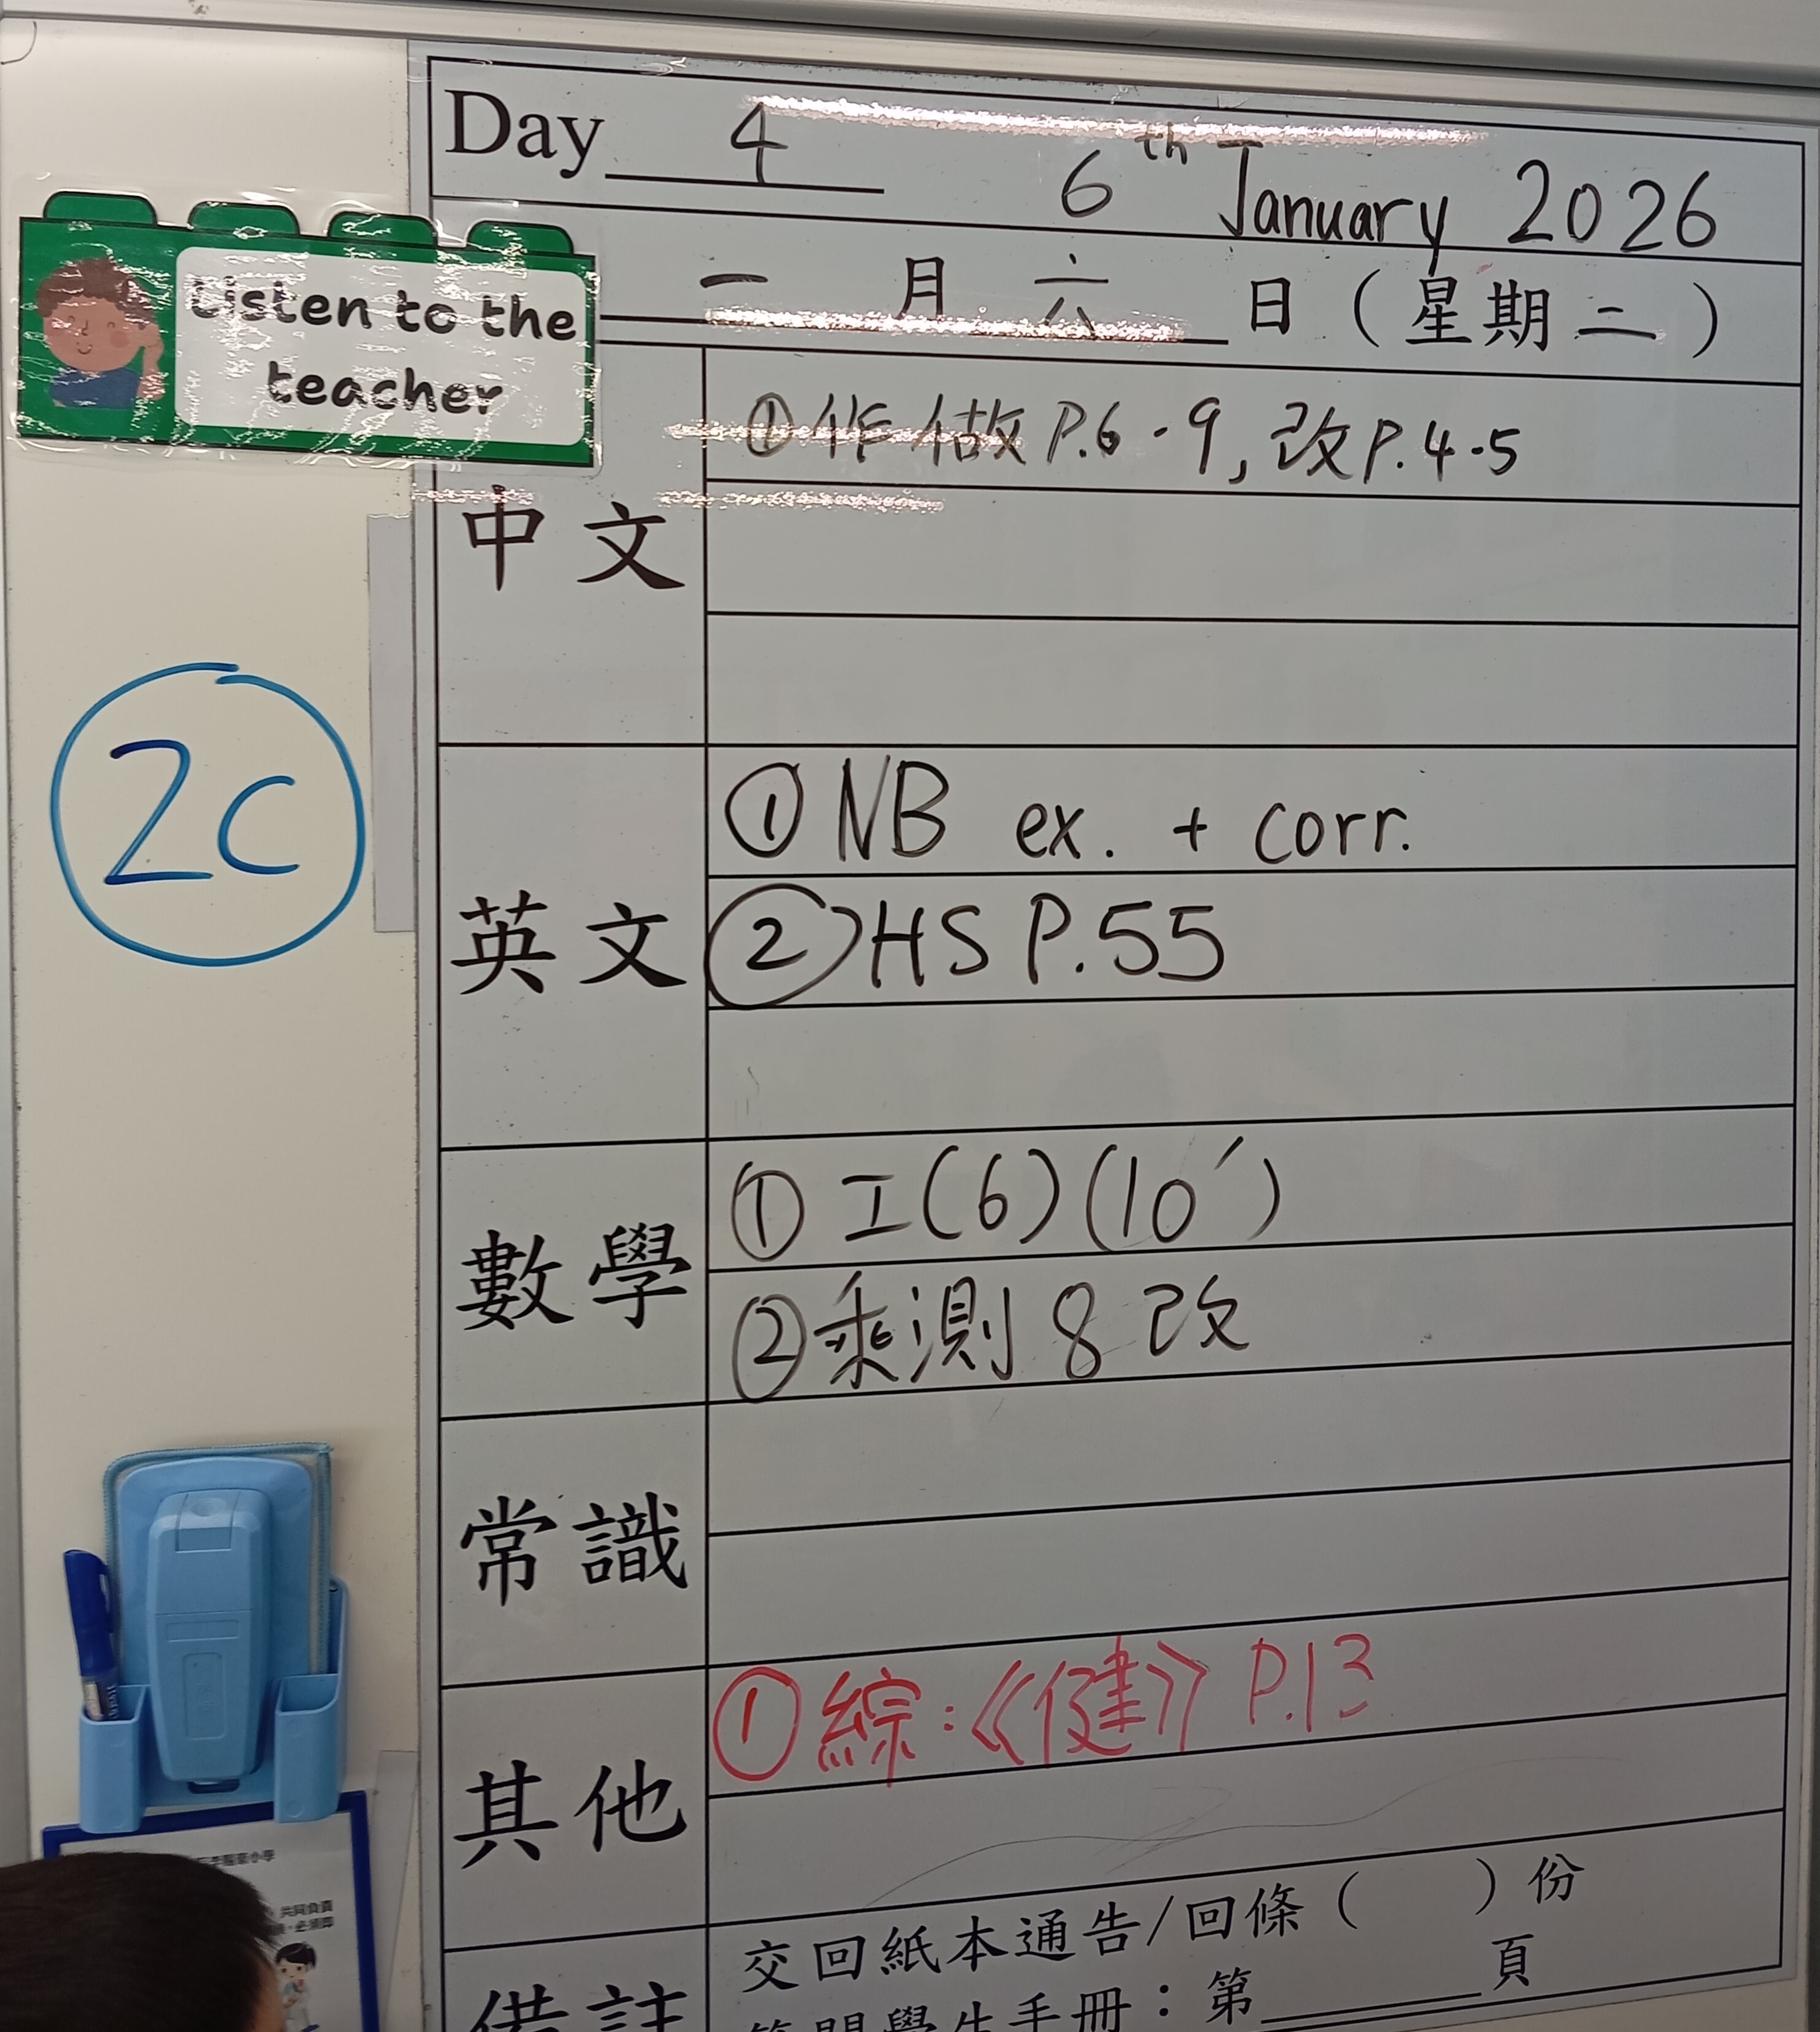 Day 4 6th January 2026
一月六日（星期二）
Listen to the
teacher
中文
①作做P.6·9, 改P.4·5
2C
英文
①NB ex. + corr.
②HS P.55
數學
①工(6)(10′)
②乘測8改
常識
其他
①綜:《健》P.13
備註
交回紙本通告/回條（ ）份
學生手冊：第 頁